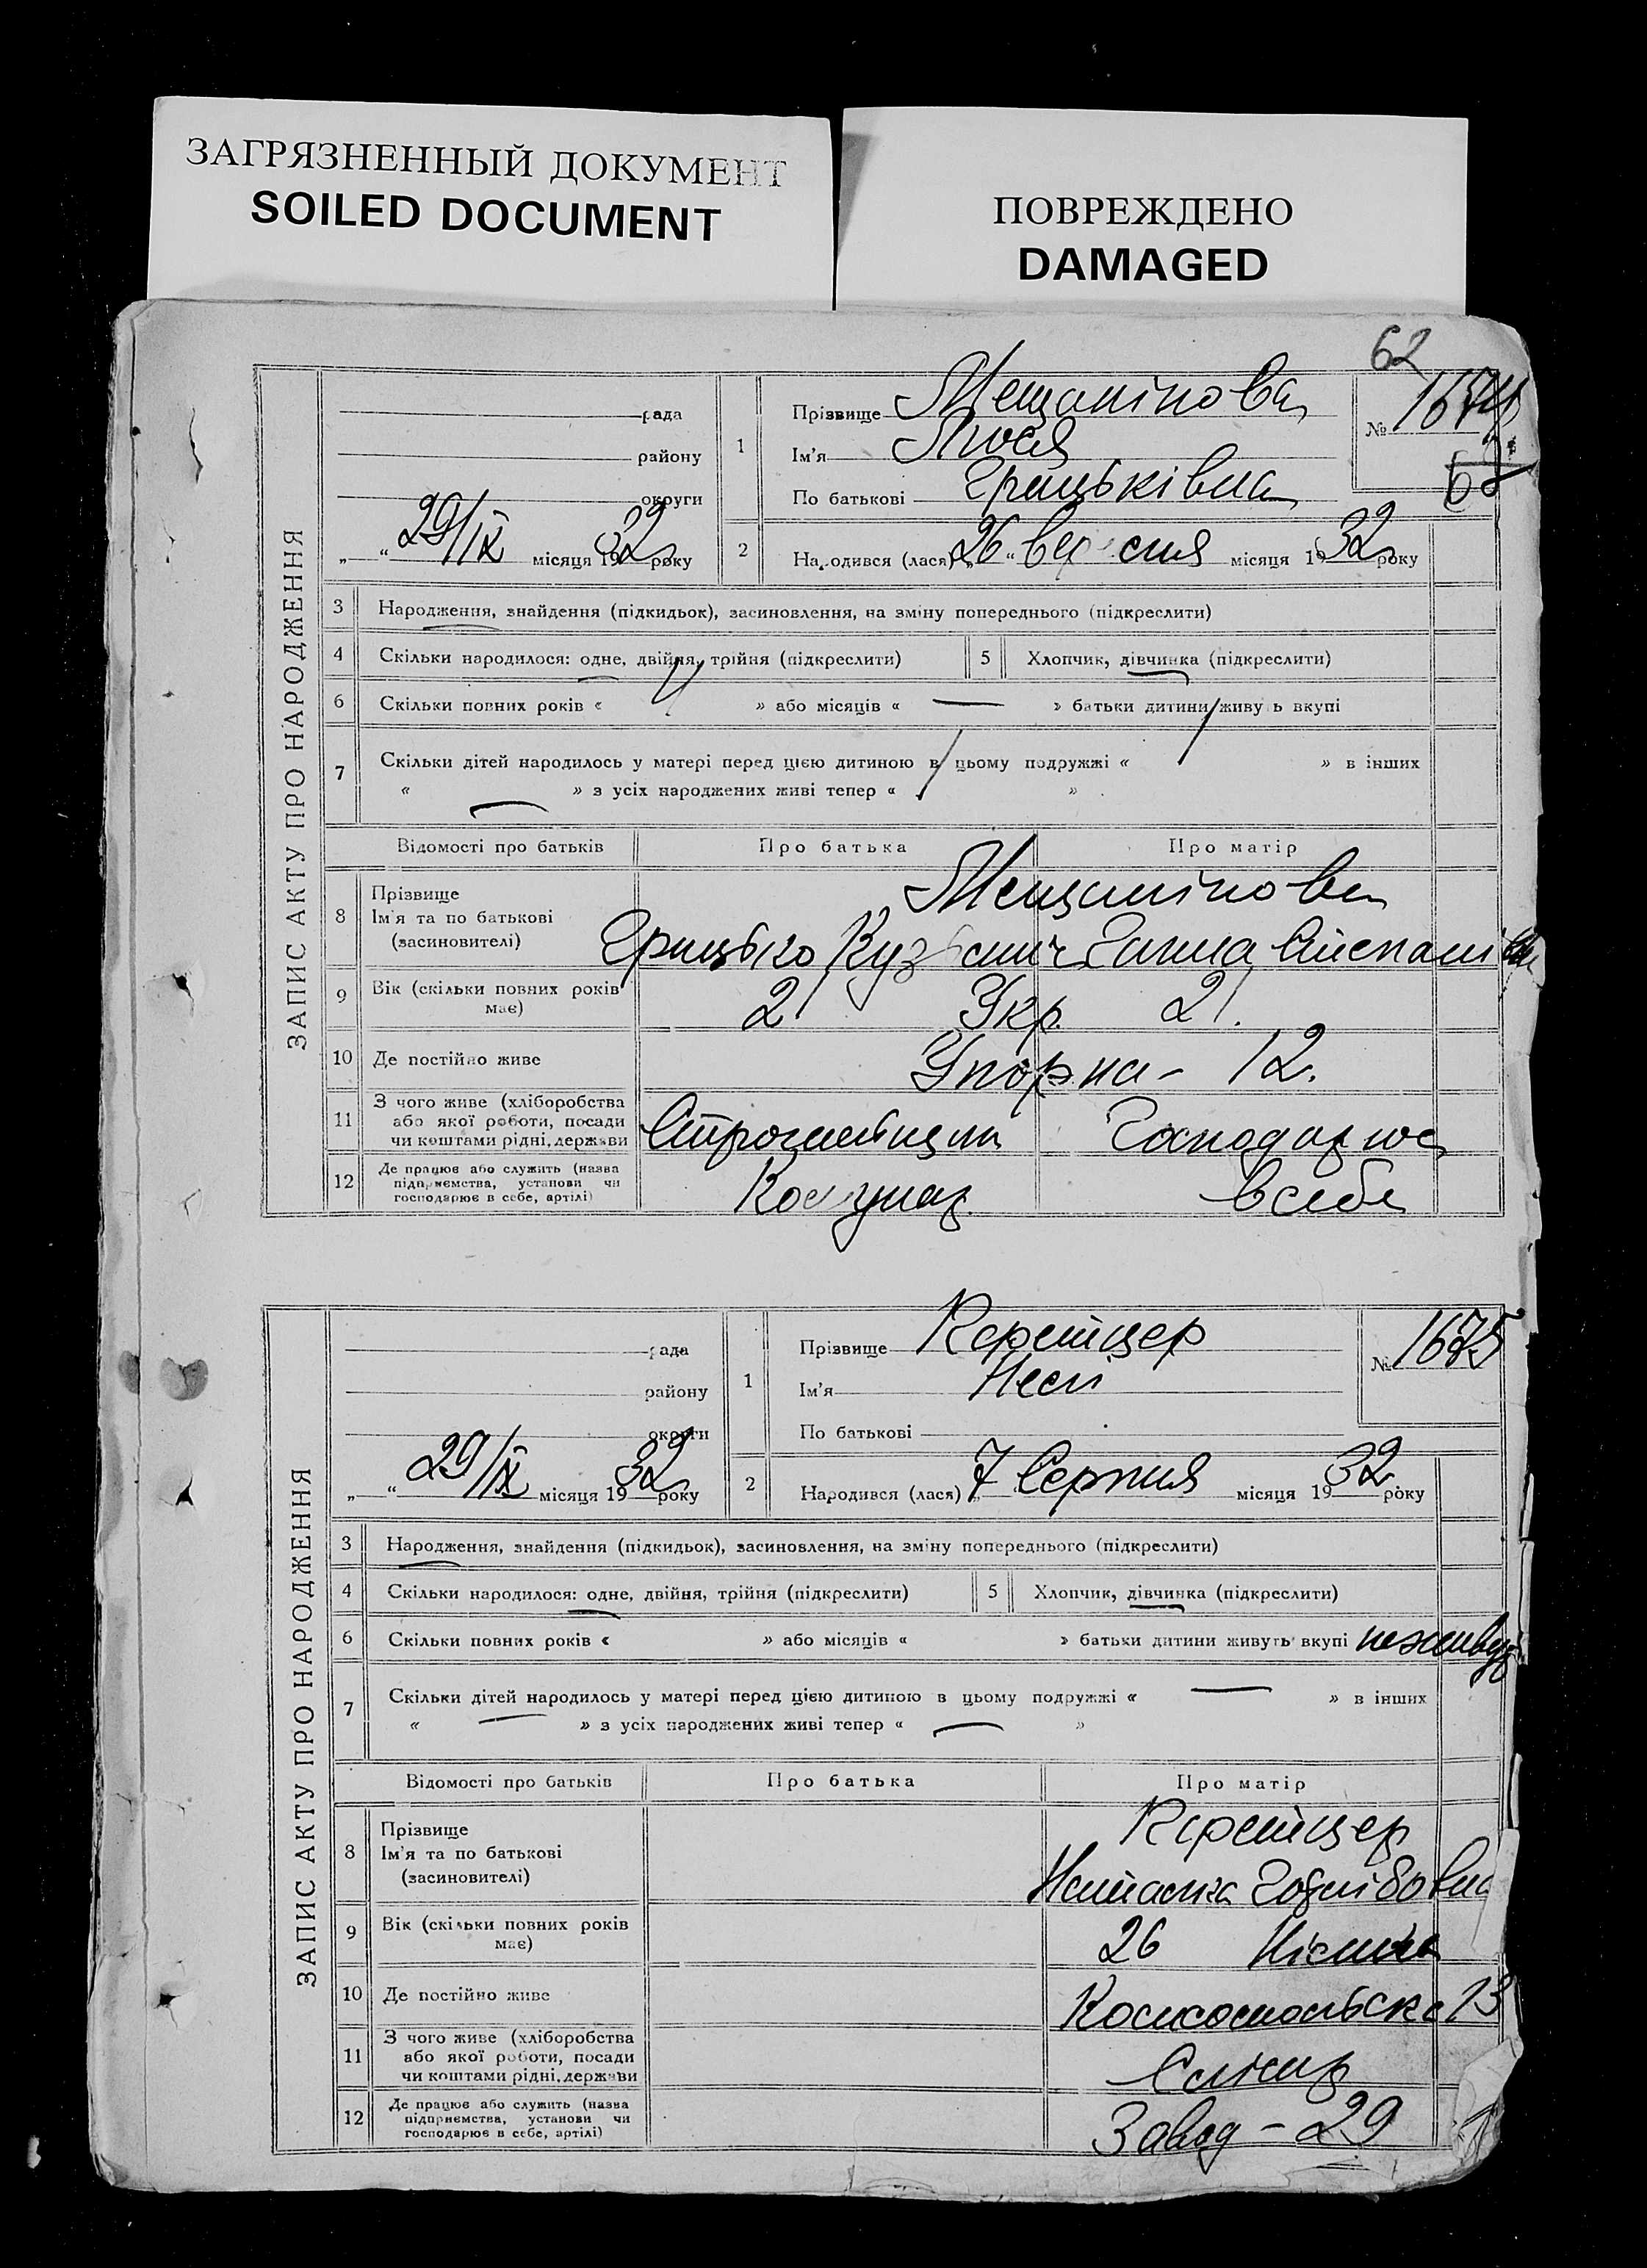 ЗАГРЯЗНЕННЫЙ ДОКУМЕНТ
SOILED DOCUMENT
ПОВРЕЖДЕНО
DAMAGED
62
ЗАПИС АКТУ ПРО НАРОДЖЕННЯ
рада
району
округи
„ “ 29/IX місяця 1932 року
1
Прізвище Мещанінова
Ім'я Люся
По батькові Грицьківна
№ 1674
2
Народився (лася) „26“ вересня місяця 1932 року
3 Народження, знайдення (підкидьок), засиновлення, на зміну попереднього (підкреслити)
4 Скільки народилося: одне, двійня, трійня (підкреслити) 5 Хлопчик, дівчинка (підкреслити)
6 Скільки повних років « » або місяців « — » батьки дитини живуть вкупі
7 Скільки дітей народилось у матері перед цією дитиною в цьому подружжі « » в інших
« — » з усіх народжених живі тепер « »
Відомості про батьків Про батька Про матір
8 Прізвище
Ім'я та по батькові
(засиновителі)
Мещанінова
Грицько Кузьмич Ганна Степанівна
9 Вік (скільки повних років
має)
21 Укр. 21.
10 Де постійно живе
Упорна - 12.
11 З чого живе (хліборобства
або якої роботи, посади
чи коштами рідні, держави
Господарює
12 Де працює або служить (назва
підприємства, установи чи
господарює в себе, артілі)
Комунар. в себе
ЗАПИС АКТУ ПРО НАРОДЖЕННЯ
рада
району
округи
„ “ 29/IX місяця 1932 року
1
Прізвище Керетцер
Ім'я Неслі
По батькові
№ 1675
2
Народився (лася) „7 Серпня місяця 1932 року
3 Народження, знайдення (підкидьок), засиновлення, на зміну попереднього (підкреслити)
4 Скільки народилося: одне, двійня, трійня (підкреслити) 5 Хлопчик, дівчинка (підкреслити)
6 Скільки повних років « » або місяців « » батьки дитини живуть вкупі неживуть
7 Скільки дітей народилось у матері перед цією дитиною в цьому подружжі « — » в інших
« — » з усіх народжених живі тепер « — »
Відомості про батьків Про батька Про матір
8 Прізвище
Ім'я та по батькові
(засиновителі)
Керетцер
Наталка Готлібовна
9 Вік (скільки повних років
має)
26 Німка
10 Де постійно живе
Комсомольська 13
11 З чого живе (хліборобства
або якої роботи, посади
чи коштами рідні, держави
Слюсар
12 Де працює або служить (назва
підприємства, установи чи
господарює в себе, артілі)
Завод - 29